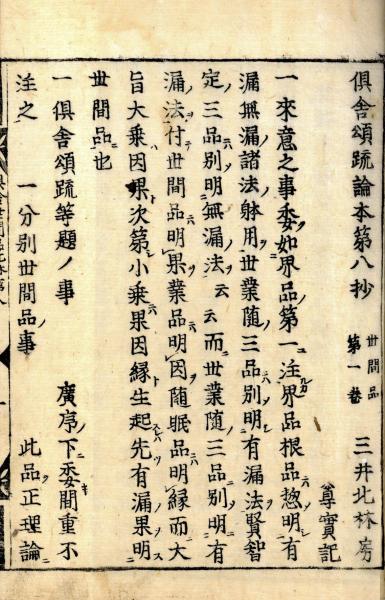 倶舍頌疏論本第八抄 世間品第一卷 三井北林房
尊實記
一來意之事委如界品第一注界品根品惣明有
漏無漏諸法躰用世業随三品別明有漏法賢智
定三品別明無漏法云云而世業随三品別明有
漏法付世間品明果業品明因随眠品明縁而大
旨大乗因果次第小乗果因縁生起先有漏果明
世間品也
一倶舍頌疏等題ノ事 廣序ノ下委間重不
注之 一分別世間品事 此品正理論